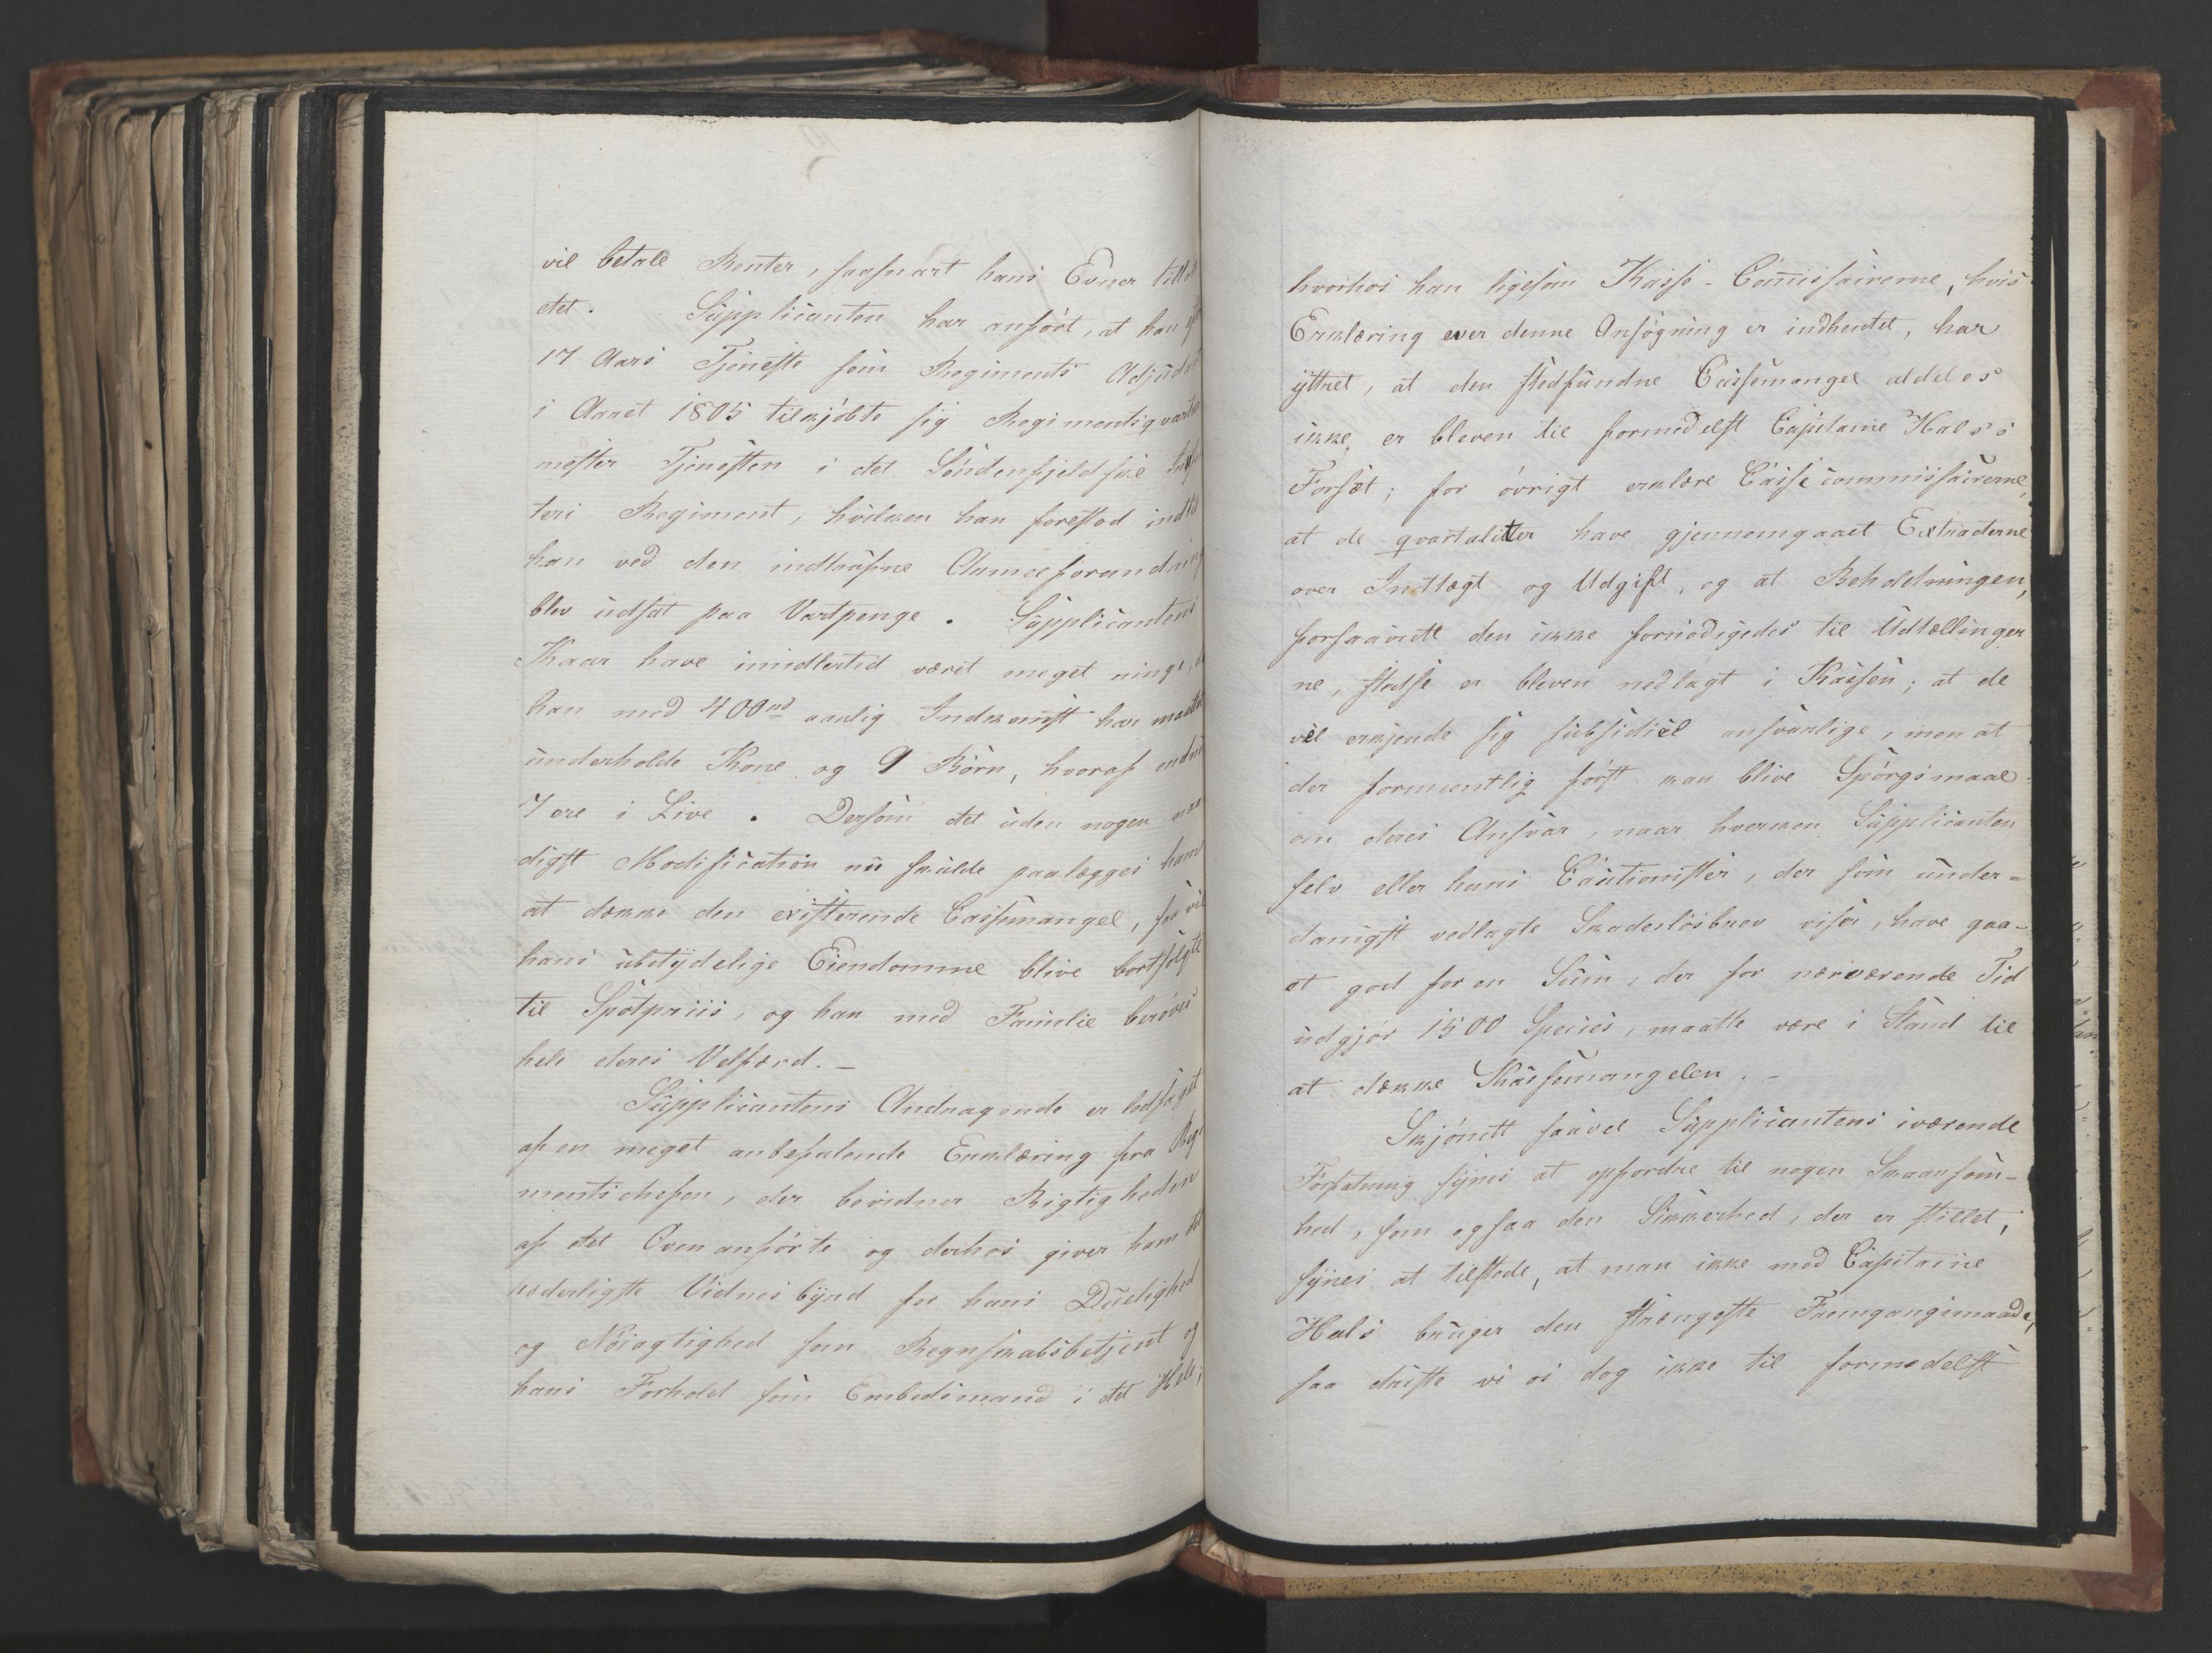 vil betale Renter, saasnart hans Evner tillade
det. Supplicanten har anført, at han efter
17 Aars Tjeneste som Regiments Adjudant
i Aaret 1805 tilkjøbte sig Regimentsqvarteer
mester Tjenesten i det Søndenfjeldske Infan
teri Regiment, hvilken han forestod indtil
han ved den indtrufne Armeeforandring
blev udsat paa Vartpenge. Supplicantens
Kaar have imidlertid været meget ringe, da
han med 400rd aarlig Indkomst har maattet
underholde Kone og 9 Børn, hvoraf endnu
7 ere i Live. Dersom det uden nogen naa
digst Modification nu skulde paalægges ham
at dække den existerende Cassemangel, saa vil
hans ubetydelige Eiendomme blive bortsolgte
til Spotpriis, og han med Familie berøves
hele deres Velfærd. _
Supplicantens Andragende er ledsaget
af en meget anbefalende Erklæring fra Regi
mentschefen, der bevidner Rigtigheden
af det Ovenanførte og derhos giver ham det
hæderligste Vidnesbyrd for hans Duelighed
og Nøiagtighed som Regnskabsbetjent og
hans Forhold som Embedsmand i det Hele;
hvorhos han ligesom Kasse-Com̄issairerne, hvis
Erklæring over denne Ansøgning er indhentet, har
yttret, at den stedfundne Cassemangel aldeles
ikke er bleven til formedelst Capitaine Hals's
Forsæt; for øvrigt erklære Cassecommissairerne,
at de qvartaliter have gjennemgaaet Extracterne
over Indtægt og Udgift, og at Beholdningen,
forsaavidt den ikke fornødigedes til Udtællinger
ne, stedse er bleven nedlagt i Kassen; at de
vel erkjende sig subsidiel ansvarlige, men at
der formeentlig først kan blive Spørgsmaal
om deres Ansvar, naar hverken Supplicanten
selv eller hans Cautionister, der som under=
danigst vedlagte Skadesløsbrev viser, have gaa-
et god for en Sum, der for nærværende Tid
udgjør 1500 Species, maatte være i Stand til
at dække Kassemangelen. _
Skjøndt saavel Supplicantens iværende
Forfatning synes at opfordre til nogen Skaansom-
hed, som ogsaa den Sikkerhed, der er stillet,
synes at tilstede, at man ikke mod Capitaine
Hals bruger den strængeste Fremgangsmaade,
saa driste vi os dog ikke til formedelst